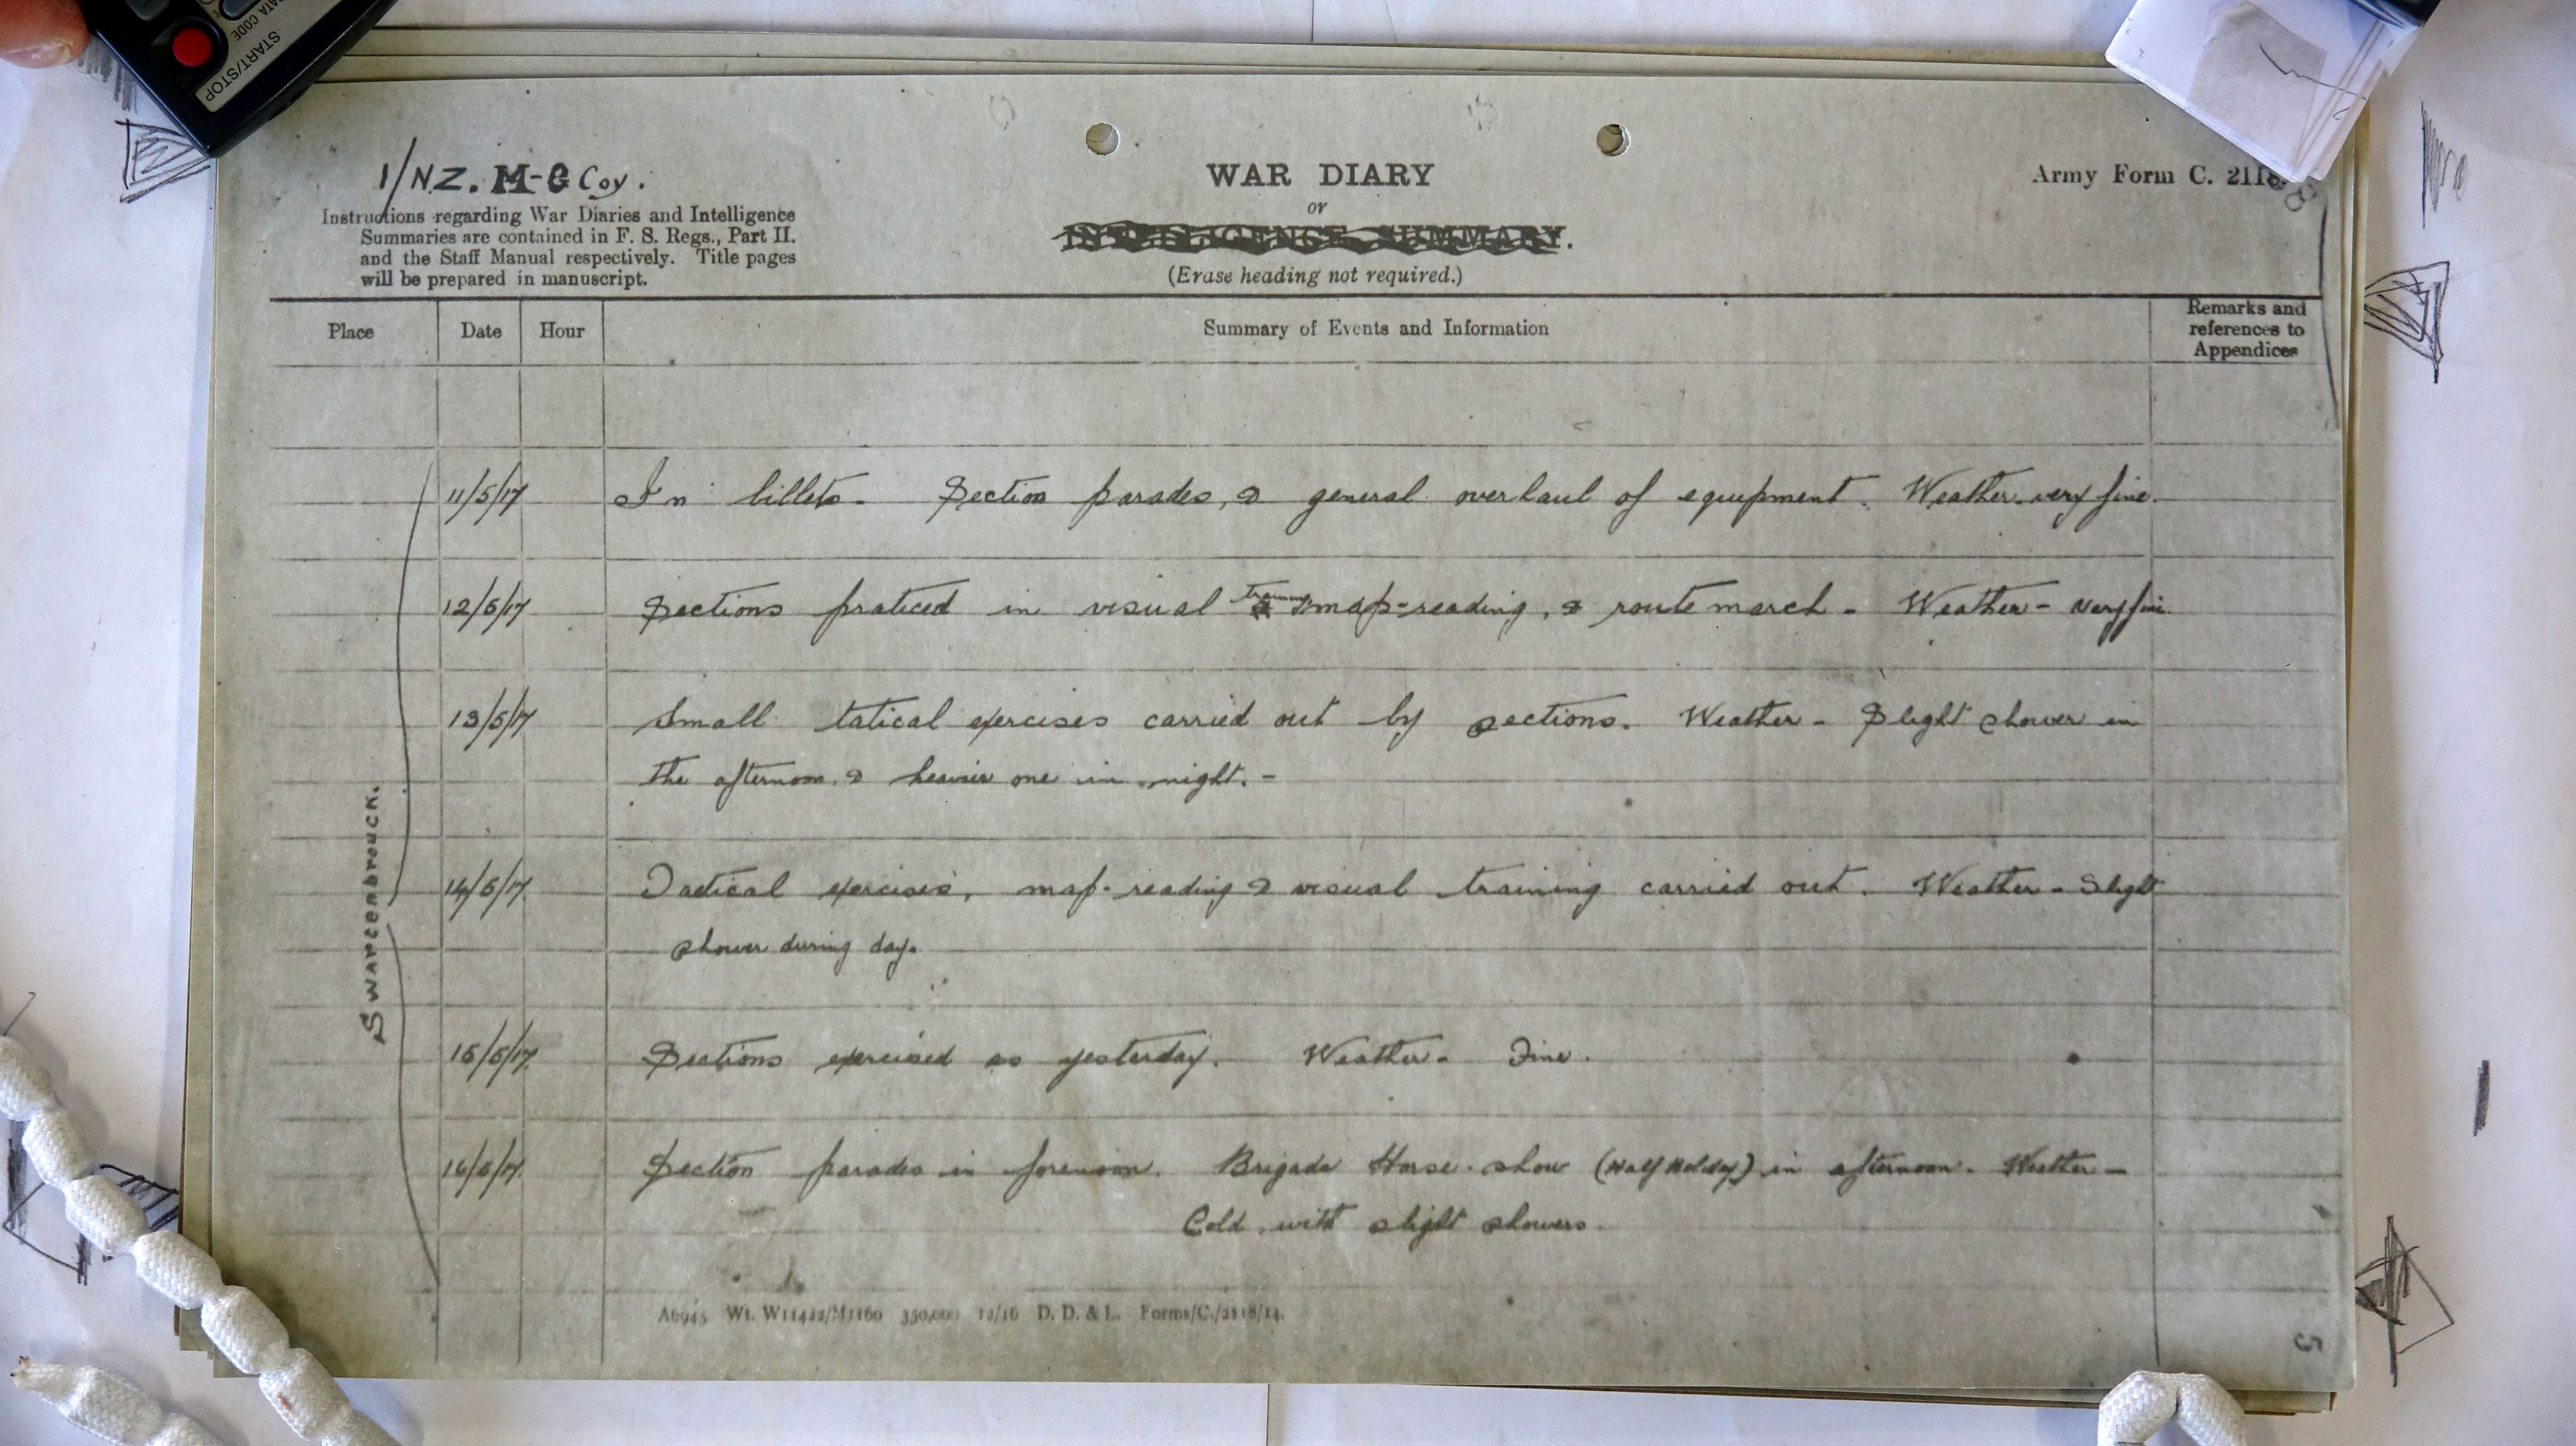 START/STOP
DATA CODE
1/N.Z. M-G Coy.
Instructions regarding War Diaries and Intelligence
Summaries are contained in F. S. Regs., Part II.
and the Staff Manual respectively. Title pages
will be prepared in manuscript.
WAR DIARY
or
INTELLIGENCE SUMMARY.
(Erase heading not required.)
Army Form C. 2118
Place Date Hour Summary of Events and Information Remarks and references to Appendices
Swartenbrouck.
11/5/17 In billets. Section parades, & general overhaul of equipment. Weather very fine.
12/5/17 Sections praticed in visual training map-reading, & route march - Weather - very fine.
13/5/17 Small tatical exercises carried out by sections. Weather - Slight shower in
the afternoon & heavier one in night. -
14/5/17 Tactical exercises, map-reading & visual training carried out. Weather - Slight
shower during day.
15/5/17 Sections exercised as yesterday. Weather - Fine.
16/5/17 Section parades in forenoon. Brigade Horse show (Half Holiday) in afternoon. Weather -
Cold, with slight showers.
A6945 Wt. W11422/M1160 350,000 12/16 D. D. & L. Forms/C./2118/14.
5